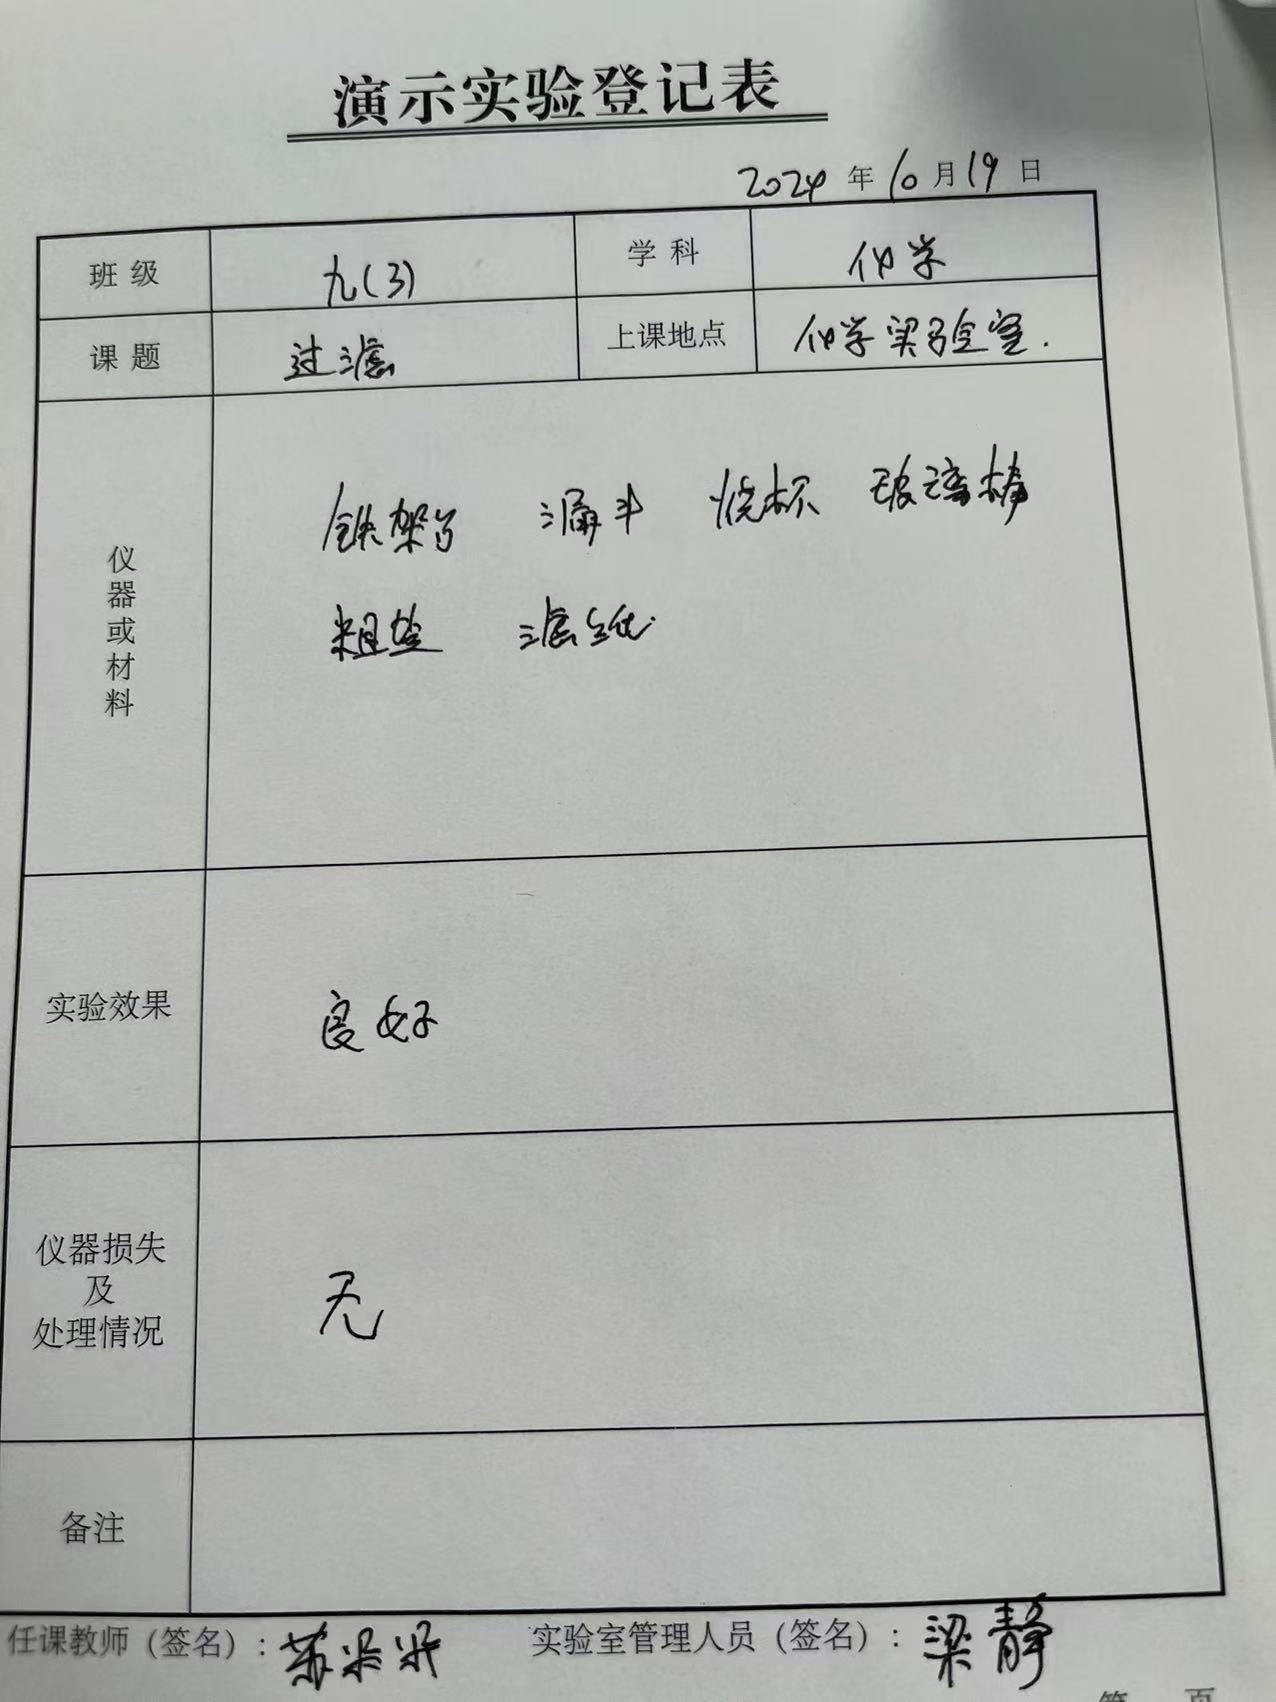 演示实验登记表
2024年10月19日
班级 九(3) 学科 化学
课题 过滤 上课地点 化学实验室.
仪器或材料
铁架台 漏斗 烧杯 玻璃棒
粗盐 滤纸
实验效果 良好
仪器损失
及
处理情况
无
备注
任课教师（签名）: 苏朵朵 实验室管理人员（签名）: 梁静
第 页